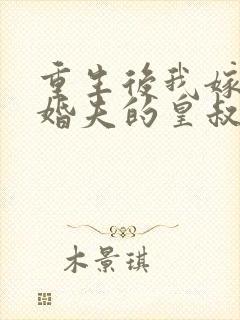 重生後我嫁
婚夫的皇叔
木景琪